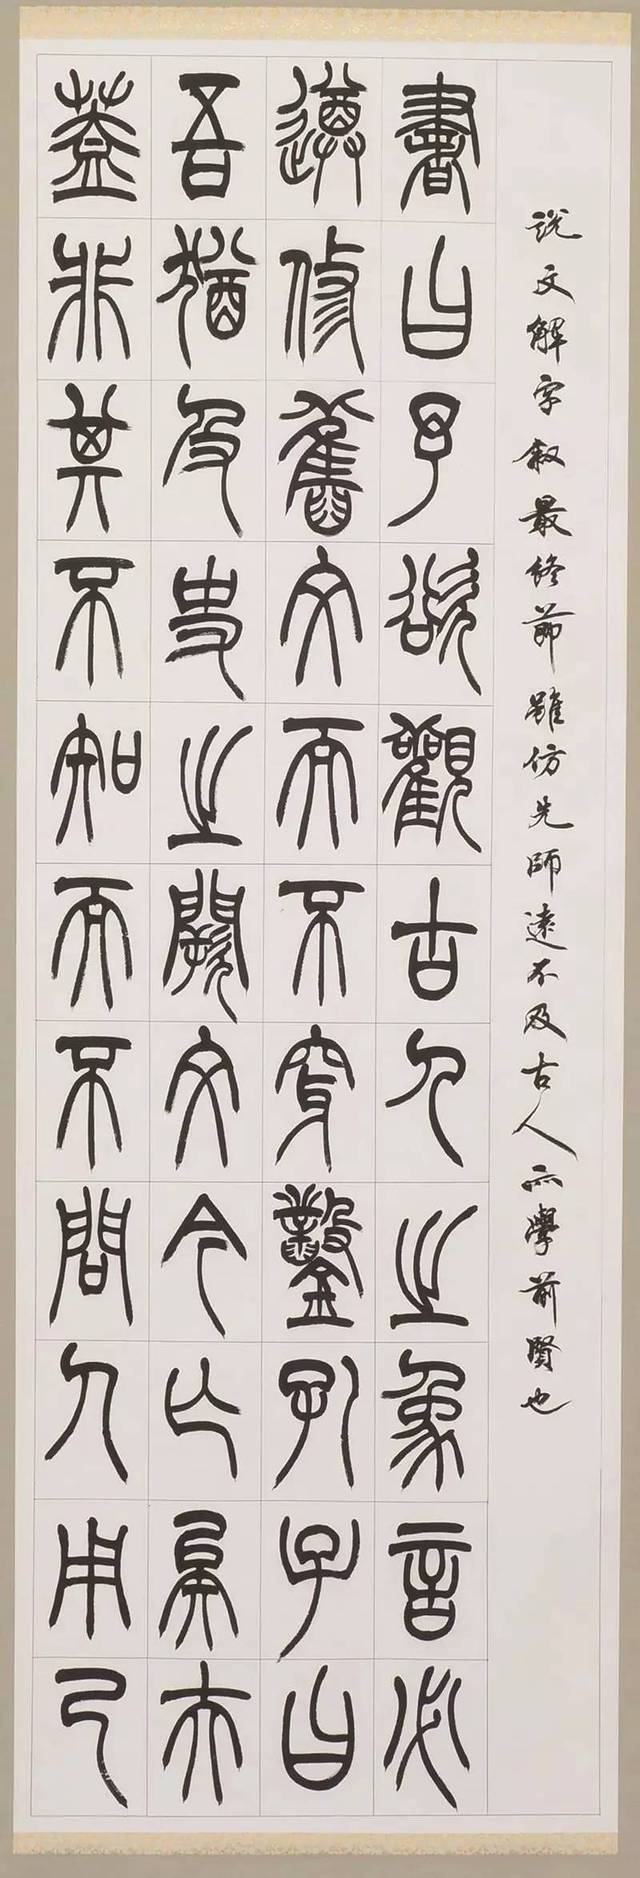 説文解字敘最終節雖仿先師遠不及古人亦學前賢也
書曰予欲觀古人之象言必
遵修舊文而不穿鑿孔子曰
吾猶及史之闕文今亡矣夫
蓋非其不知而不問人用己